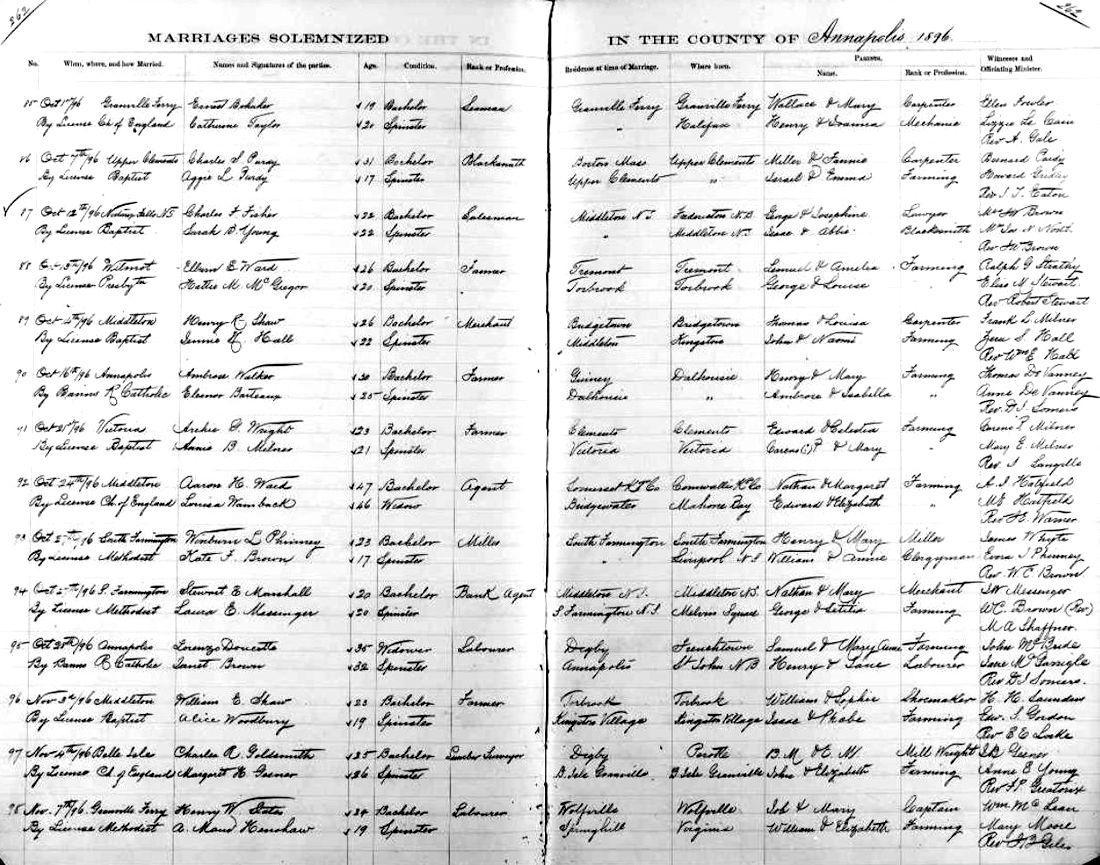 262
262
MARRIAGES SOLEMNIZED IN THE COUNTY OF Annapolis 1896
No. When, where, and how Married. Names and Signatures of the parties. Age. Condition. Rank or Profession. Residence at time of Marriage. Where born. PARENTS. Name. Rank or Profession. Witnesses and Officiating Minister.
85 Oct 1st/96 Granville Ferry Ernest 19 Bachelor Seaman Granville Ferry Granville Ferry Wallace & Mary Carpenter Ellen Fowler
By License Ch of England Catherine Taylor 20 Spinster " Halifax Henry & Mechanic Lizzie Le Cain
Rev H. Gale
86 Oct 7th/96 Upper Clements Charles S Purdy 31 Bachelor Blacksmith Boston Mass Upper Clements Miller & Fannie Carpenter Bernard
By License Baptist Aggie L Purdy 17 Spinster Upper Clements " Israel & Emma Farming Howard
Rev J. T. Eaton
87 Oct 12th/96 Falls NS Charles F Fisher 22 Bachelor Salesman Middleton N.S Fredericton N.B. George & Josephine Lawyer Brown
By License Baptist Sarah B Young 22 Spinster " Middleton N.S Isaac & Abbie Blacksmith
Rev Brown
88 Oct 13th/96 Wilmot E Ward 26 Bachelor Farmer Tremont Tremont Lemuel & Amelia Farming Ralph G Strathy
By License Presbytn Hattie M. McGregor 20 Spinster Torbrook Torbrook George & Louise " M Stewart
Rev Robert Stewart
89 Oct 14th/96 Middleton Henry R Shaw 26 Bachelor Merchant Bridgetown Bridgetown Thomas & Louisa Carpenter Frank L Milner
By License Baptist Jennie Hall 22 Spinster Middleton Kingston John & Naomi Farming S Hall
Rev Wm E Hall
90 Oct 16th/96 Annapolis Ambrose Walker 30 Bachelor Farmer Guinney Dalhousie Henry & Mary Farming Thomas De Vanney
By Banns R Catholic Eleanor Barteaux 25 Spinster Dalhousie " Ambrose & Isabella " Anne De Vanney
Rev D S Somers
91 Oct 21st/96 Victoria Archie D Wright 23 Bachelor Farmer Clements Clements Edward & Celestia Farming P Milner
By License Baptist Annie B. Milner 21 Spinster Victoria Victoria P & Mary " Mary E Milner
Rev J Langille
92 Oct 24th/96 Middleton Aaron H. Ward 47 Bachelor Agent Somerset K Co Cornwallis K Co Nathan & Margaret Farming A. J Hatfield
By License Ch. of England Louisa Wamback 46 Widow Bridgewater Mahone Bay Edward & Elizabeth " ME Hatfield
Rev H. Warner
93 Oct 27th/96 South Farmington L Phinney 23 Bachelor Miller South Farmington South Farmington Henry & Mary Miller James Whyte
By License Methodist Kate F. Brown 17 Spinster " Liverpool N S William & Annie Clergyman J Phinney
Rev. W C Brown
94 Oct 27th/96 S. Farmington Stewart E Marshall 20 Bachelor Bank Agent Middleton N.S. Middleton N.S. Nathan & Mary Merchant Messenger
By License Methodist Laura E Messenger 20 Spinster S Farmington N.S Melvin Square George & Letitia Farming W.C. Brown (Rev)
M A Shaffner
95 Oct 28th/96 Annapolis Lorenzo Doucette 35 Widower Labourer Digby Frenchtown Samuel & Mary Anne Farming John McBride
By Banns R Catholic Janet Brown 32 Spinster Annapolis St John N B Henry & Jane Labourer Jane
Rev D S Somers
96 Nov 3d/96 Middleton William E Shaw 23 Bachelor Farmer Torbrook Torbrook William & Sophie Shoemaker H. H. Saunders
By License Baptist Alice Woodbury 19 Spinster Kingston Village Kingston Village Isaac & Phebe Farming Edw. S. Gordon
Rev E E Locke
97 Nov 4th/96 Belle Isle Charles R Goldsmith 25 Bachelor Lumber Surveyor Digby B.M. & E.M. Mill Wright Gesner
By License Ch. of England Margaret H Gesner 26 Spinster B. Isle Granville B Isle Granville John & Elizabeth Farming Anne E Young
Rev Greatorex
98 Nov. 7th/96 Granville Ferry Henry W 24 Bachelor Labourer Wolfville Wolfville Job & Mary Captain Wm McLean
By License Methodist A. Maud Henshaw 19 Spinster Springhill Virginia William & Elizabeth Farming Mary Moore
Rev J B Giles